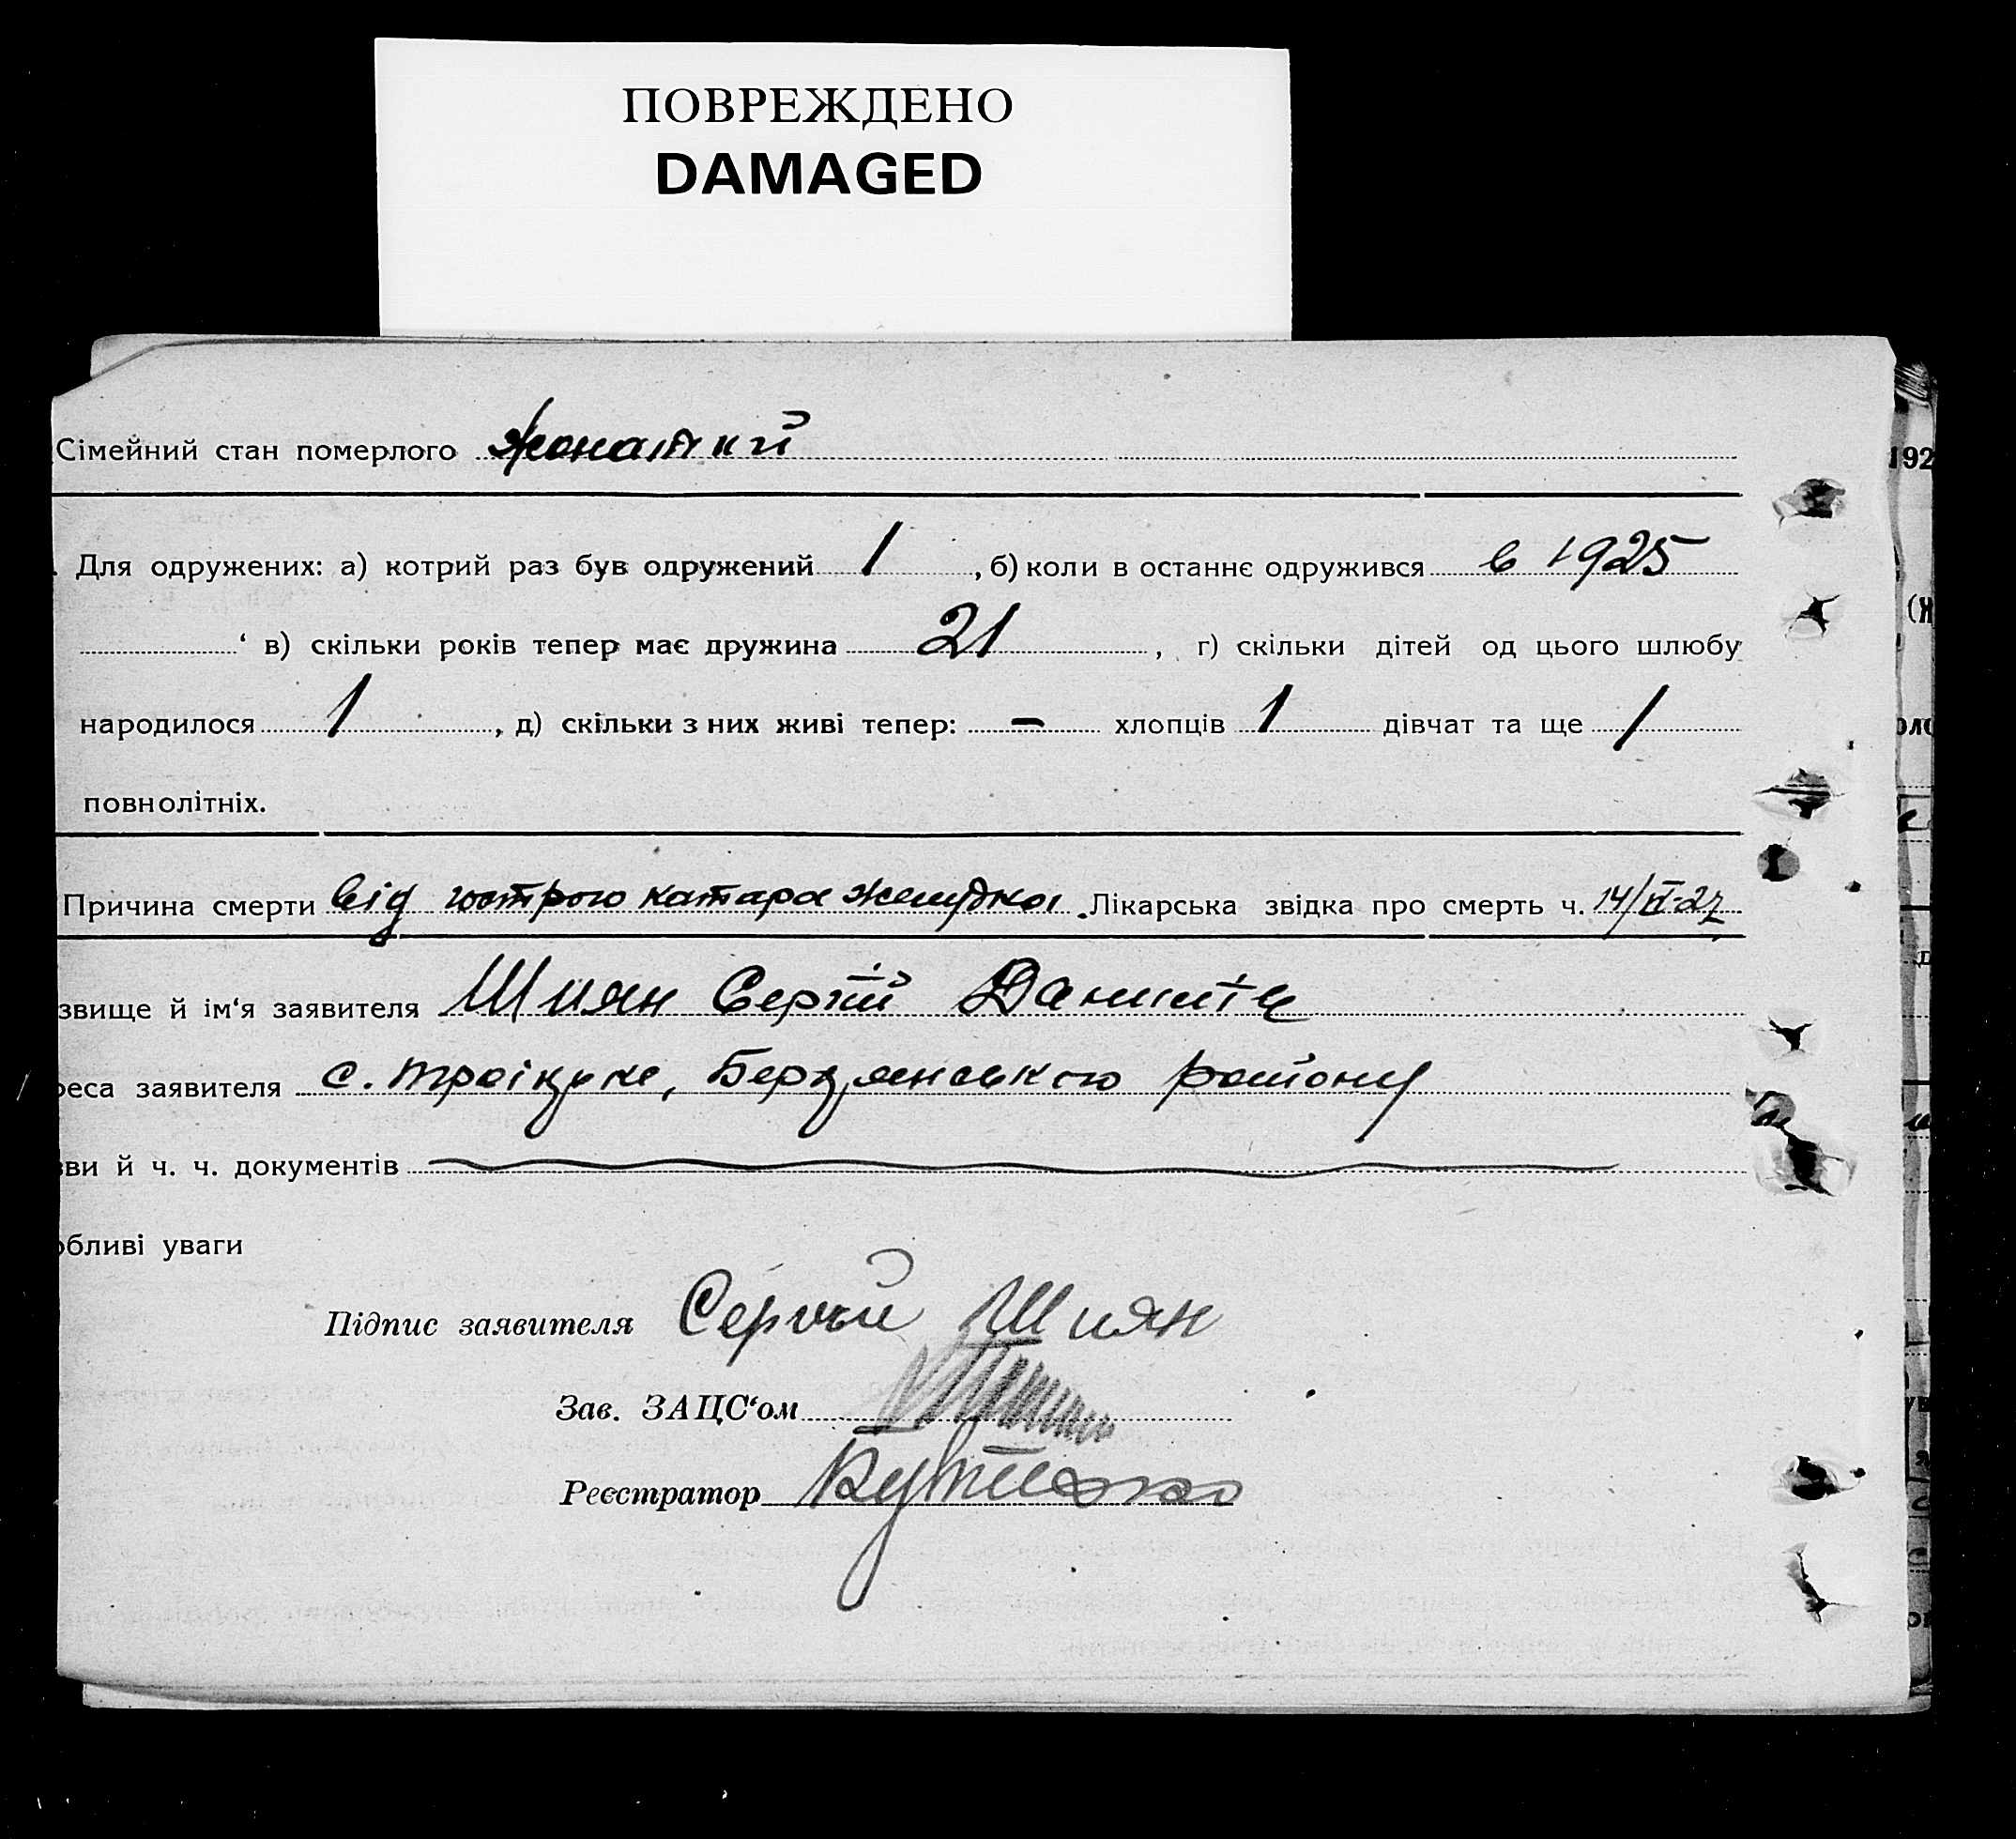 ПОВРЕЖДЕНО
DAMAGED
Сімейний стан померлого жонатий
Для одружених: а) котрий раз був одружений 1, б) коли в останнє одружився в 1925
‘ в) скільки років тепер має дружина 21, г) скільки дітей од цього шлюбу
народилося 1, д) скільки з них живі тепер: - хлопців 1 дівчат та ще /
повнолітніх.
Причина смерти від гострого катара желудка. Лікарська звідка про смерть ч. 14/VI-27
звище й ім‘я заявителя Шиян Сергій Данилів
реса заявителя с. Троіцьке, Бердянського району
зви й ч. ч. документів
обливі уваги
Підпис заявителя Сергій Шиян
Зав. ЗАЦС‘ом
Реєстратор
192